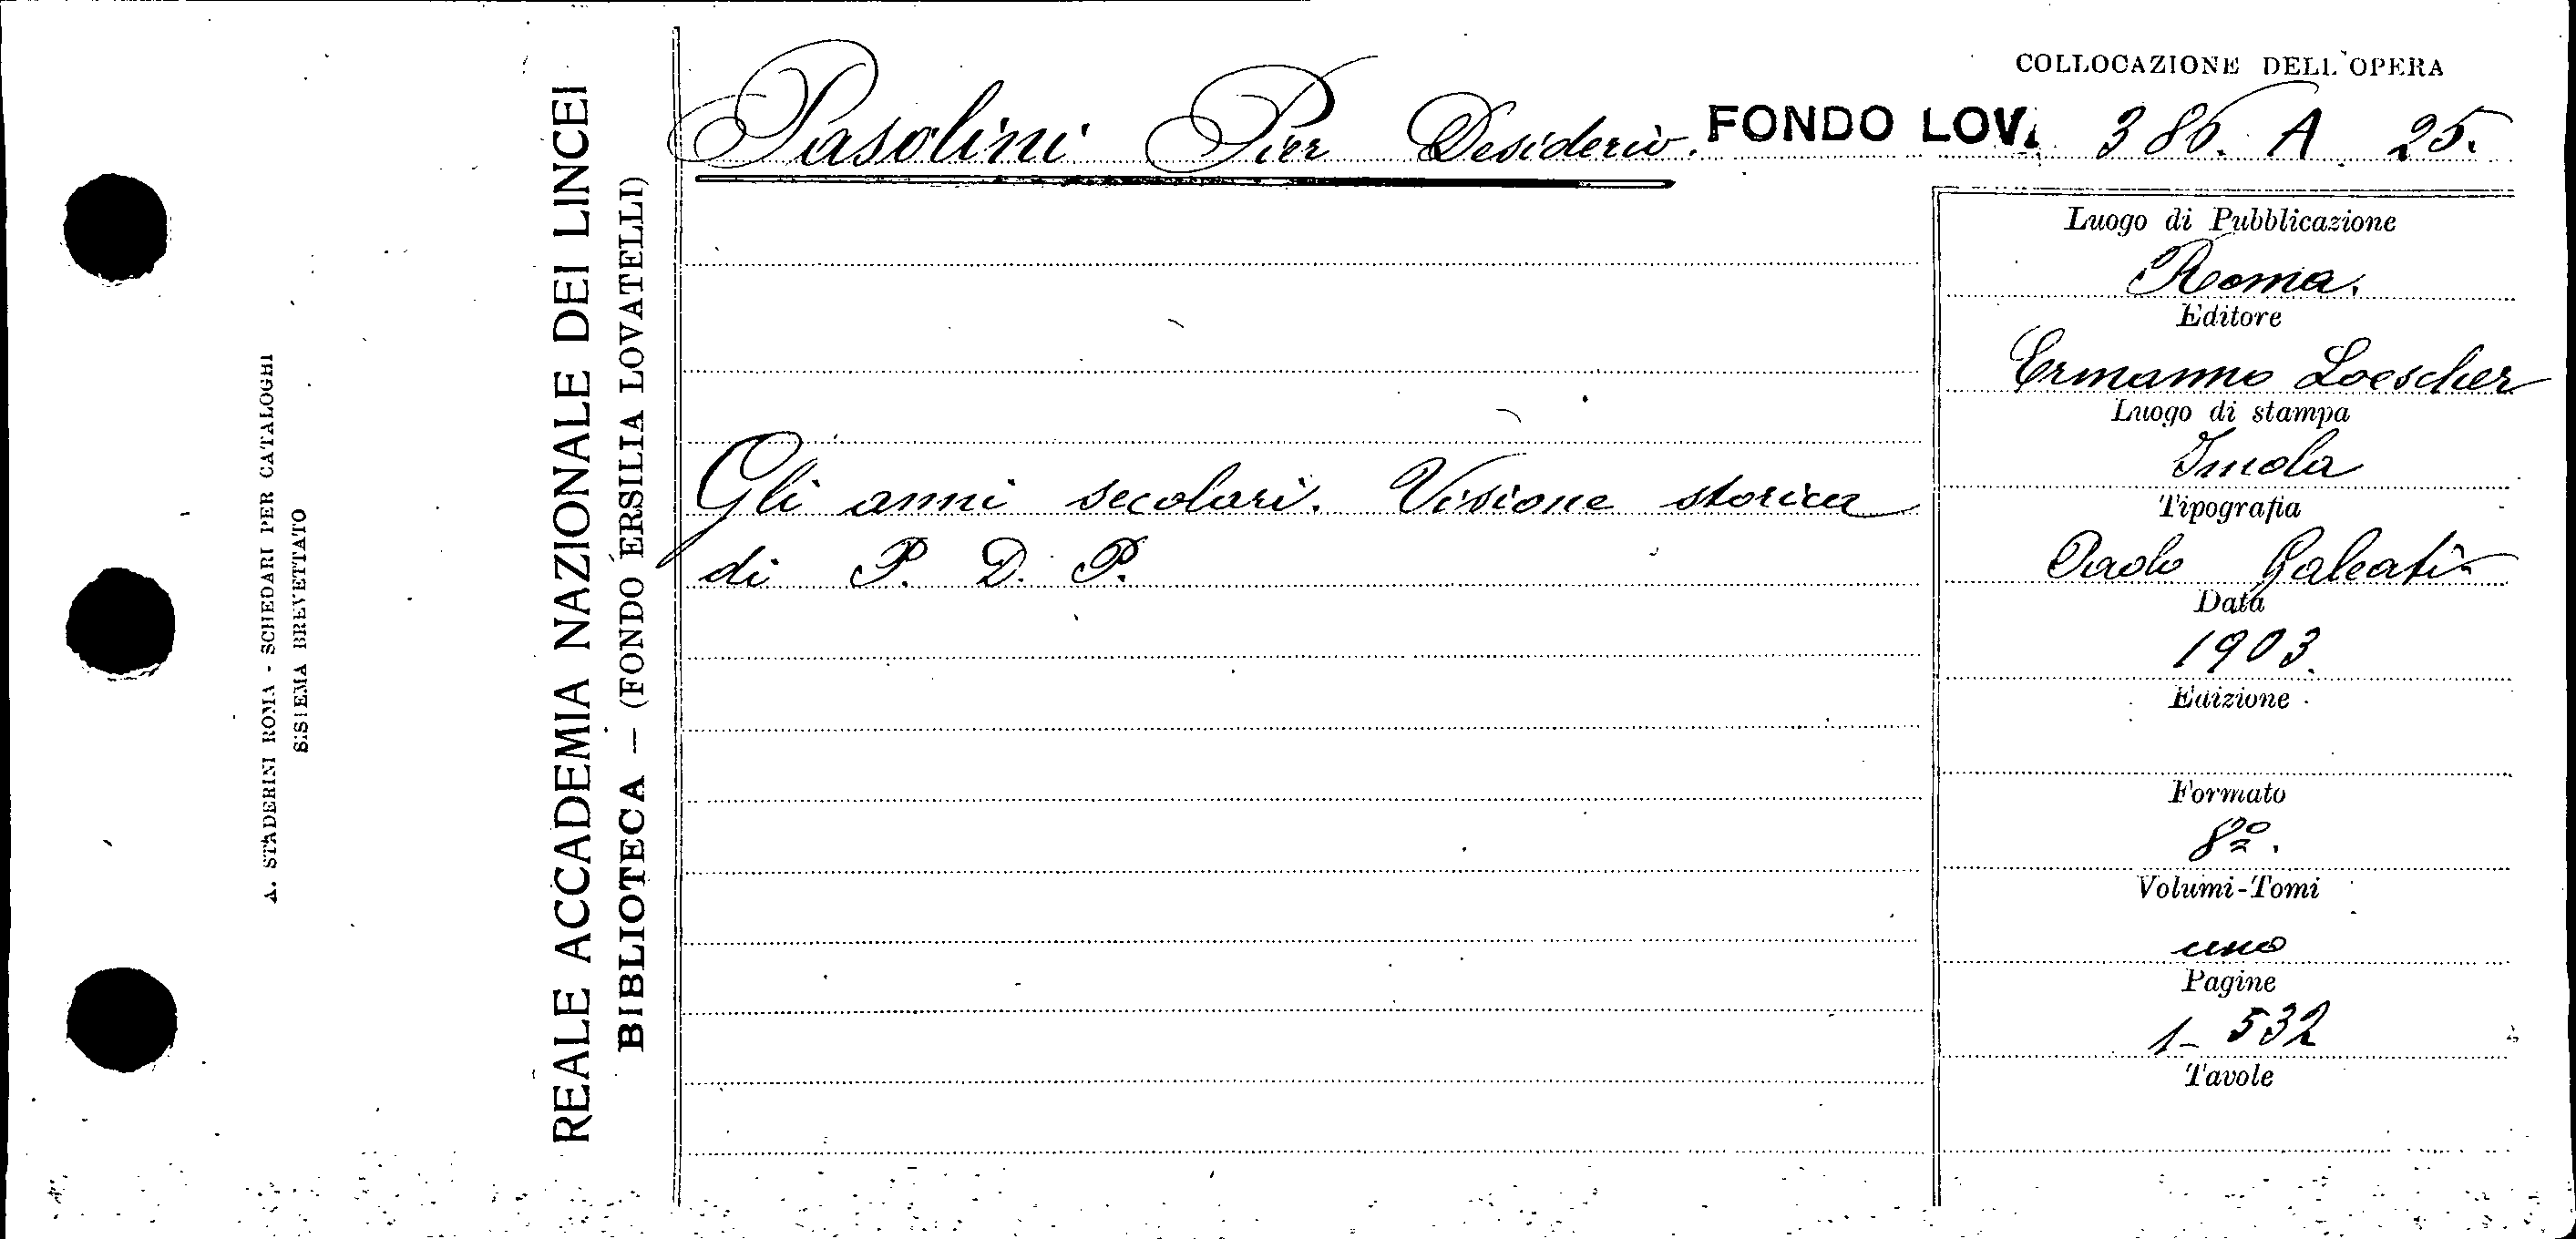 A. STADERINI ROMA - SCHEDARI PER CATALOGHI
SISTEMA BREVETTATO
REALE ACCADEMIA NAZIONALE DEI LINCEI
BIBLIOTECA — (FONDO ERSILIA LOVATELLI)
COLLOCAZIONE DELL'OPERA
Pasolini Pier Desiderio. FONDO LOV. 386. A. 25.
Gli anni secolari. Visione storica
di P. D. P.
Luogo di Pubblicazione
Roma.
Editore
Ermanno Loescher
Luogo di stampa
Imola
Tipografia
Paolo Galeati
Data
1903.
Edizione
Formato
8º.
Volumi-Tomi
uno
Pagine
1-532
Tavole